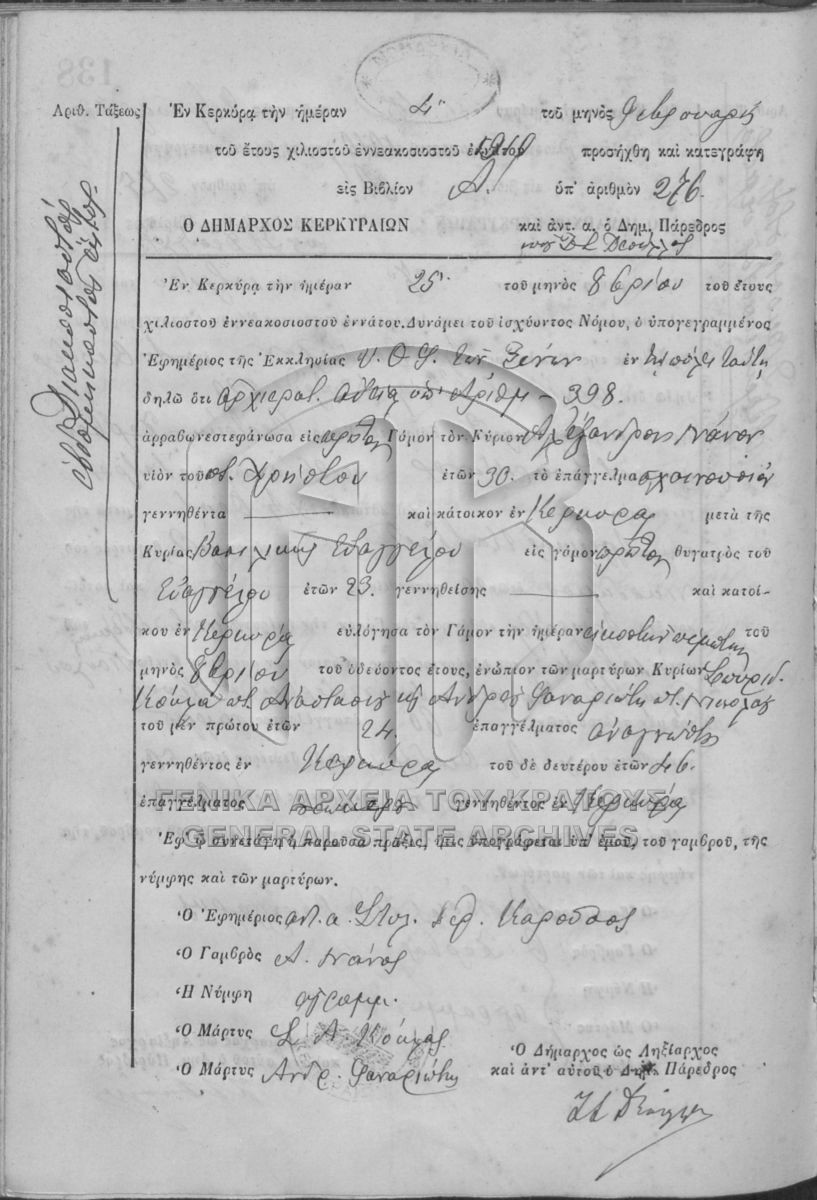 Ἀριθ. Τάξεως
Ἐν Κερκύρᾳ τὴν ἡμέραν 4 τοῦ μηνὸς Φεβρουαρίου
τοῦ ἔτους χιλιοστοῦ ἐννεακοσιοστοῦ προσήχθη καὶ κατεγράφη
εἰς Βιβλίον Α. ὑπ' ἀριθμὸν 276.
Ο ΔΗΜΑΡΧΟΣ ΚΕΡΚΥΡΑΙΩΝ καὶ ἀντ. α. ὁ Δημ. Πάρεδρος
Ἐν Κερκύρᾳ τὴν ἡμέραν 25 τοῦ μηνὸς 8βρίου τοῦ ἔτους
χιλιοστοῦ ἐννεακοσιοστοῦ ἐννάτου. Δυνάμει τοῦ ἰσχύοντος Νόμου, ὁ ὑπογεγραμμένος
Ἐφημέριος τῆς Ἐκκλησίας Υ. Θ. Φ. τῶν Ξένων ἐν τῇ πόλει ταύτῃ
δηλῶ ὅτι ἀρχιερατ. ἀδείᾳ ὑπ' ἀριθμ - 398.
ἀρραβωνεστεφάνωσα εἰς πρῶτον Γάμον τὸν Κύριον Ἀλέξανδρον Νάνον
υἱὸν τοῦ ποτ. Χρήστου ἐτῶν 30. τὸ ἐπάγγελμα σχοινοποιόν
γεννηθέντα καὶ κάτοικον ἐν Κερκύρᾳ μετὰ τῆς
Κυρίας Βασιλικῆς Εὐαγγέλου εἰς γάμον πρῶτον θυγατρὸς τοῦ
Εὐαγγέλου ἐτῶν 23. γεννηθείσης καὶ κατοί-
κου ἐν Κερκύρᾳ εὐλόγησα τὸν Γάμον τὴν ἡμέραν εἰκοστὴν πέμπτην τοῦ
μηνὸς 8βρίου τοῦ ὁδεύοντος ἔτους, ἐνώπιον τῶν μαρτύρων Κυρίων Σπυρίδ.
Κούλα ποτ. Ἀναστασίου κ Ἀνδρέου Φαναριώτη ποτ. Νικολάου
τοῦ μὲν πρώτου ἐτῶν 24. ἐπαγγέλματος ἀναγνώστη
γεννηθέντος ἐν Κερκύρᾳ τοῦ δὲ δευτέρου ἐτῶν 46.
ἐπαγγέλματος γεννηθέντος ἐν Κερκύρᾳ
ΓΕΝΙΚΑ ΑΡΧΕΙΑ ΤΟΥ ΚΡΑΤΟΥΣ
GENERAL STATE ARCHIVES
Ἐφ' ᾧ συνετάγη ἡ παροῦσα πρᾶξις, ἥτις ὑπογράφεται ὑπ' ἐμοῦ, τοῦ γαμβροῦ, τῆς
νύμφης καὶ τῶν μαρτύρων.
Ὁ Ἐφημέριος
Ὁ Γαμβρὸς Α. Νάνος
Ἡ Νύμφη ἀγράμμ.
Ὁ Μάρτυς Σ. Α. Κούλας
Ὁ Μάρτυς Ἀνδρ. Φαναριώτης
Ὁ Δήμαρχος ὡς Ληξίαρχος
καὶ ἀντ' αὐτοῦ ὁ Δημ. Πάρεδρος